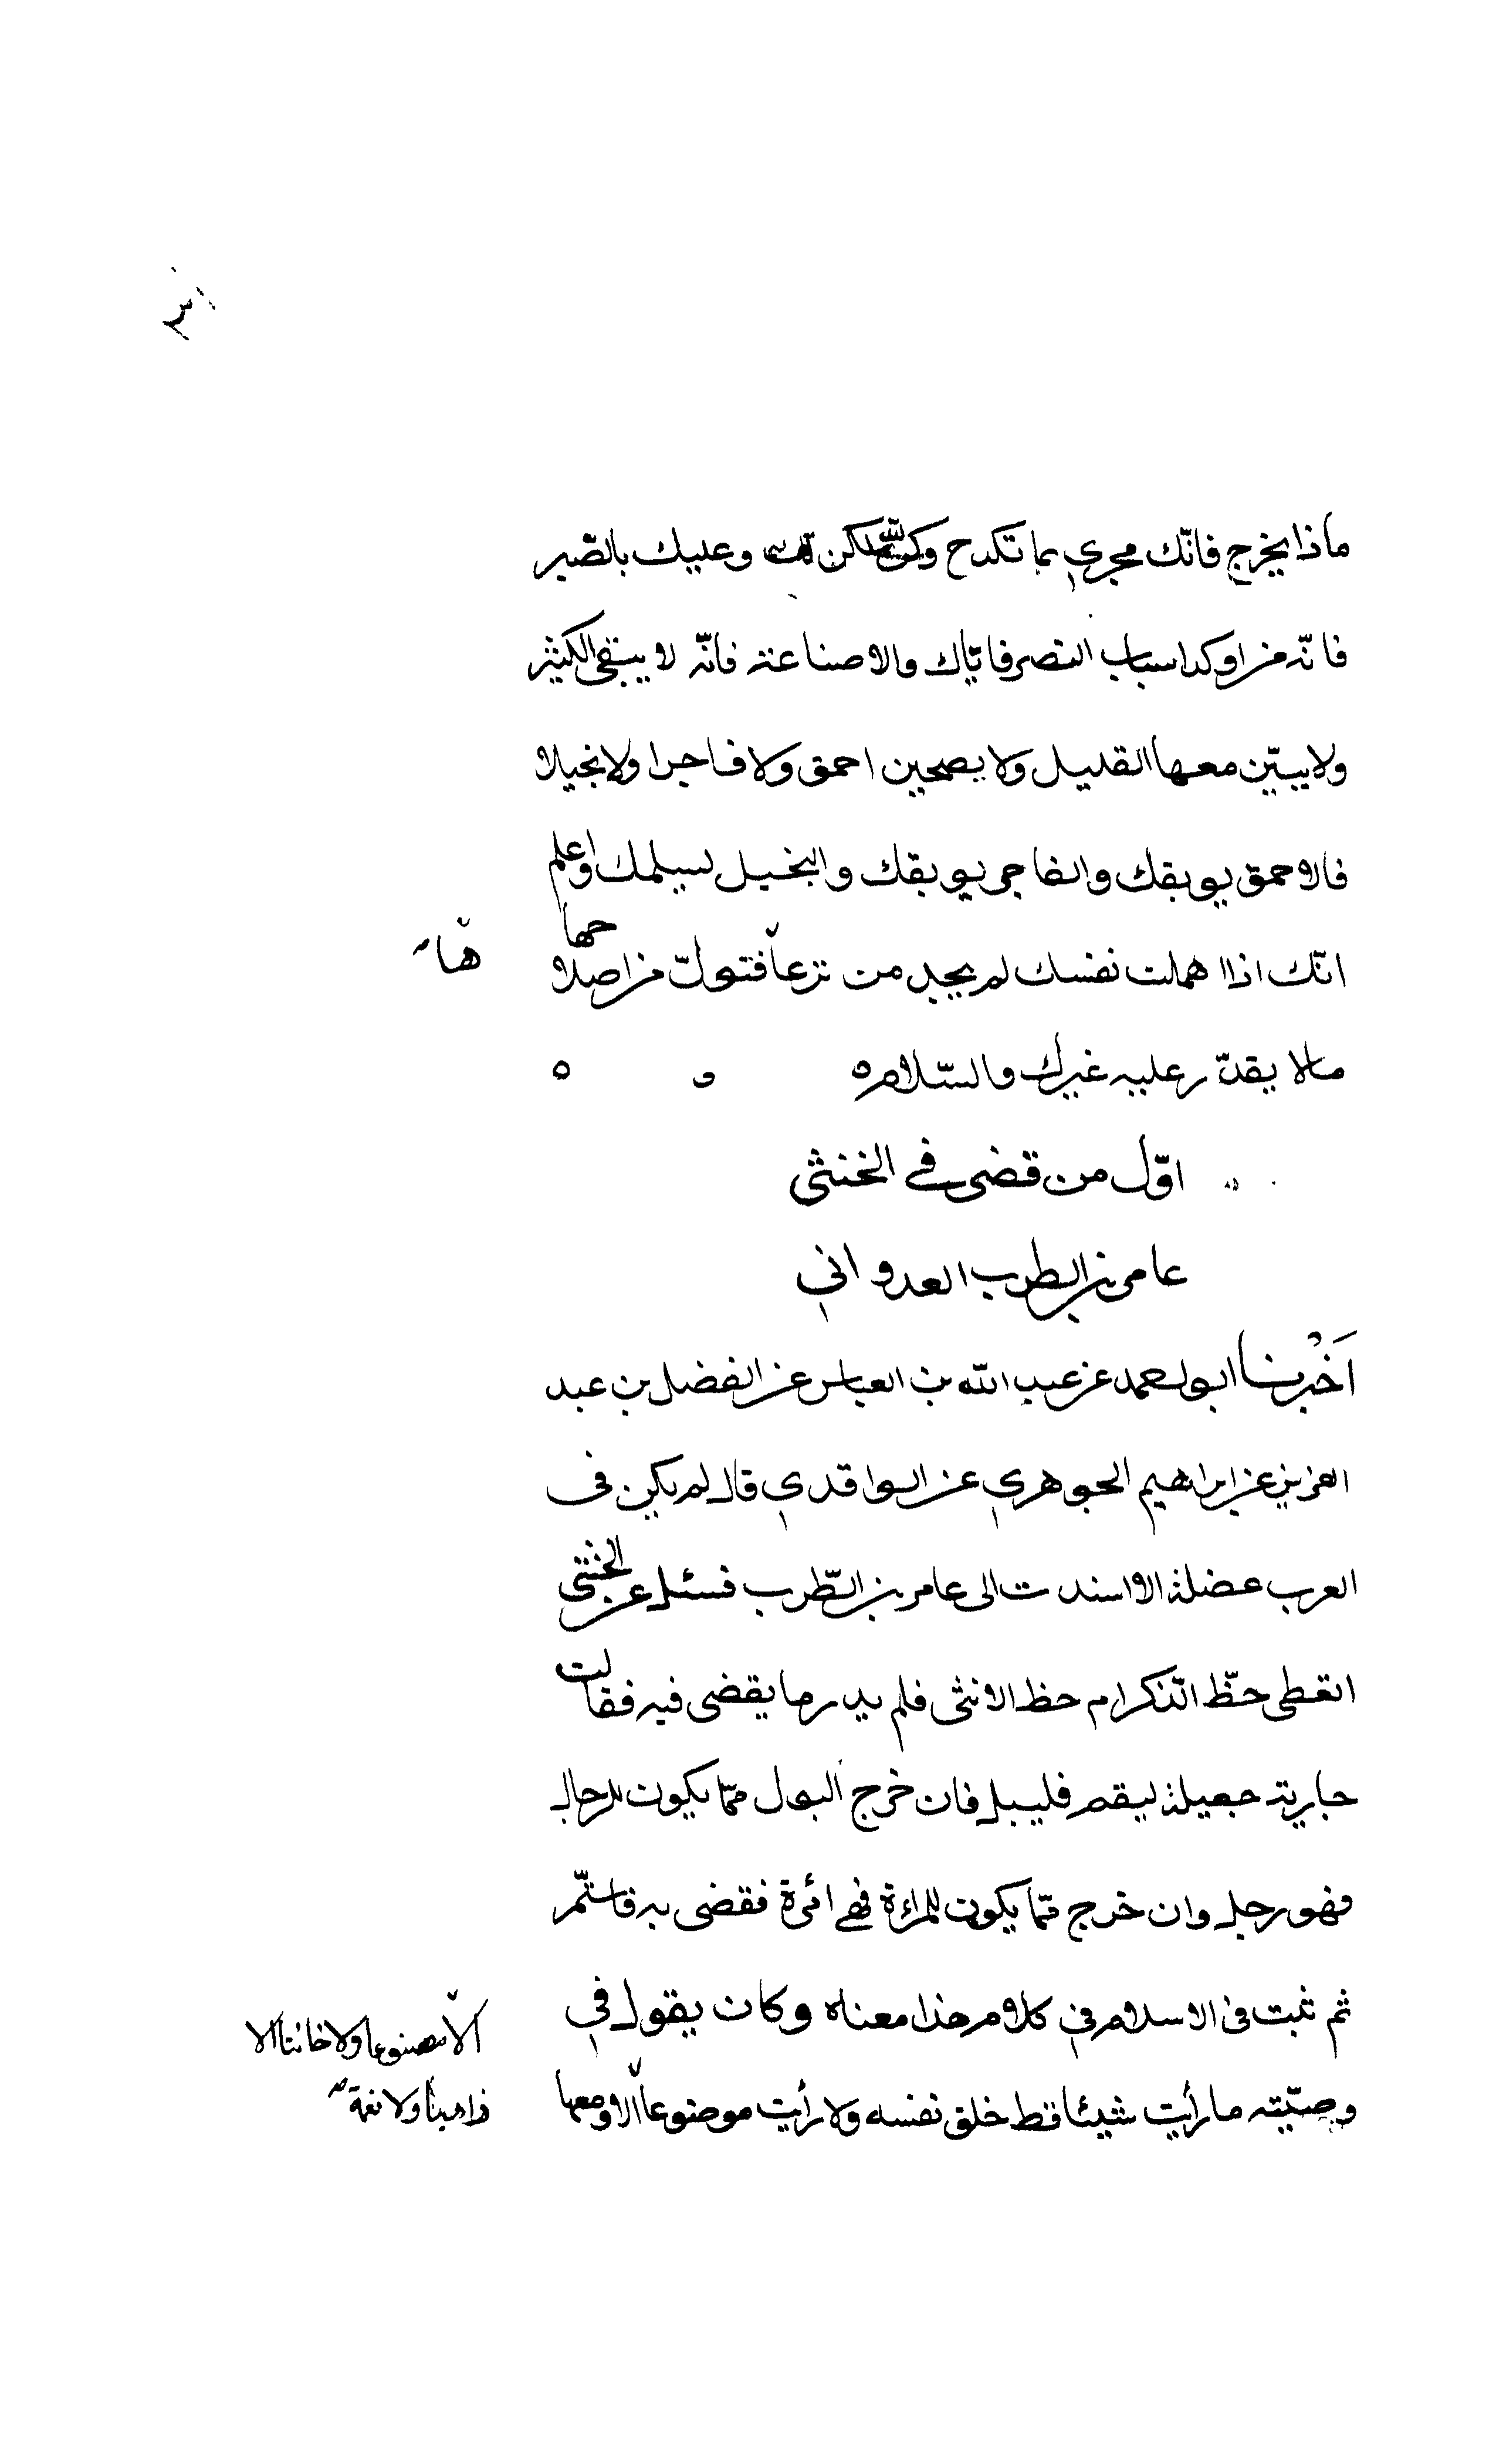 ماذا يخرج فانّك مجري بما تكدح وعليك بالصّبر
فانّه من اوكد اسباب النصر فايّاك والاضاعة فانّه لا يبقى الكثير
ولا يبيّن معها القليل ولا يصحبن احمق ولا فاجرا ولا بخيلا
فالاحمق يوبقك والفاجر يوبقك والبخيل ليسلمك واعلم
انّك اذا اهملت نفسك لم يجد من نزعا فتولّ من اصلاحها
مالا يقدّر عليه غيرك والسّلام ه ه ه
اوّل من قضى في الخنثى
عامر بن الطرب العدواني
اَخْبرنا ابو احمد عن عبد الله بن العباس عن الفضل بن عبد
العزيز عن ابراهيم الجوهري عن الواقدي قال لم يكن في
العرب عضلة الا اسندت الى عامر بن الظّرب فسئل عن الخنثى
اتعطى حظّ الذّكر ام حظ الانثى فلم يدر ما يقضى فيه فقالت
جارية جميلة ليقم فليبل فان خرج البول ممّا يكون للرجال
فهو رجل وان خرج ممّا يكون للمراءة فهي امرءة فقضى به فاستمّر
ثم ثبت فى الاسلام في كلام هذا معناه وكان يقول في
وصيّته ما رأيت شيئا قط خلق نفسه ولا رأيت موضوعا الا ومعها
الا مصنوعا ولا خائنا الا
ذاهبا ولا نعمة